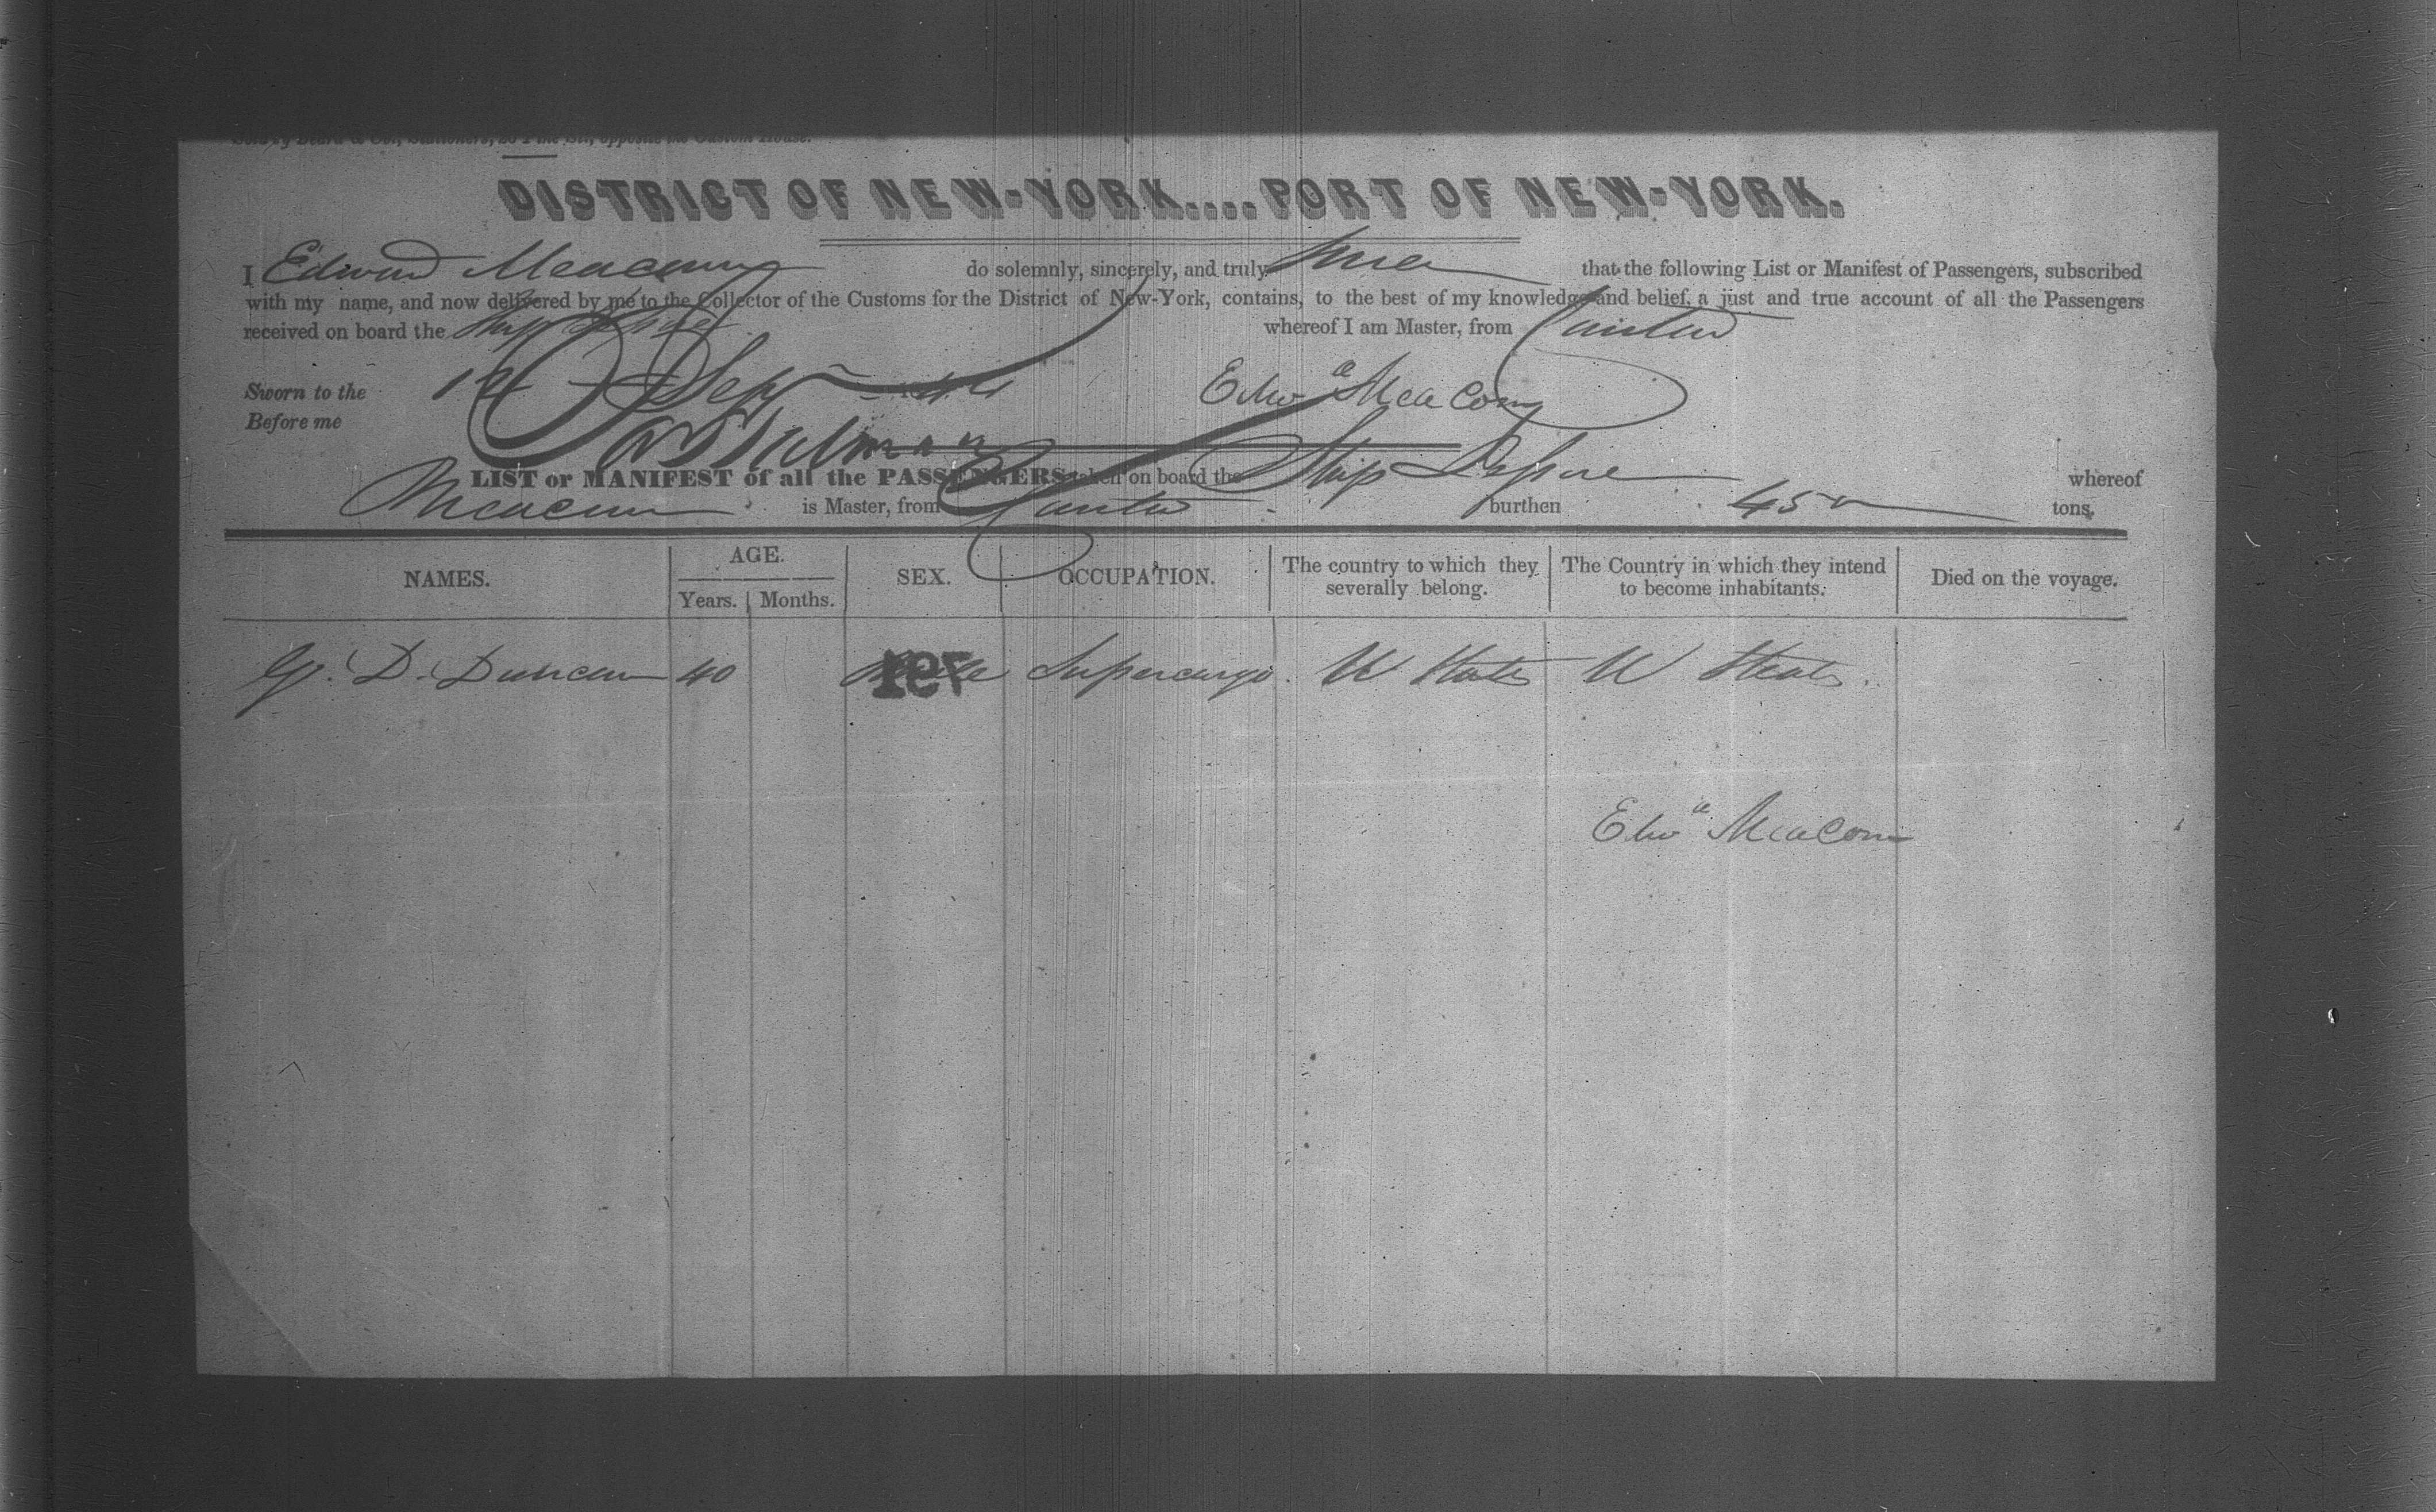 Sold by Beard & Co., Stationers, 28 Pine Str., opposite the Custom House.
DISTRICT OF NEW-YORK....PORT OF NEW-YORK.
I Edward Meacom do solemnly, sincerely, and truly swear that the following List or Manifest of Passengers, subscribed
with my name, and now delivered by me to the Collector of the Customs for the District of New-York, contains, to the best of my knowledge and belief, a just and true account of all the Passengers
received on board the Ship whereof I am Master, from Canton
Sworn to the Sept Edwd Meacom
Before me
LIST or MANIFEST of all the PASSENGERS taken on board the Ship whereof
Meacom is Master, from Canton burthen 450 tons.
NAMES. AGE. Years. Months. SEX. OCCUPATION. The country to which they severally belong. The Country in which they intend to become inhabitants. Died on the voyage.
D. Duncan 40 Male Supercargo. U States U States.
Edwd Meacom